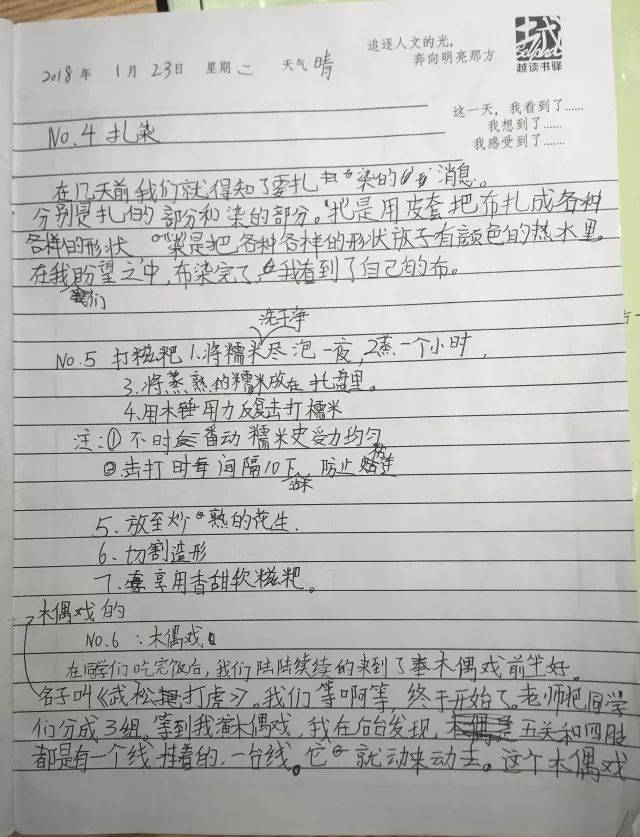 追逐人文的光,
奔向明亮那方
越读书驿
2018年 1月23日 星期二 天气 晴
这一天，我看到了……
我想到了……
我感受到了……
No.4 扎染
在几天前我们就得知了要扎染的消息。
分别是扎的部分和染的部分。扎是用皮套把布扎成各种
各样的形状，染是把各种各样的形状放于有颜色的热水里。
在我们盼望之中，布染完了，我看到了自己的布。
洗干净
No.5 打糍粑 1.将糯米尽泡一夜，2蒸一个小时，
3.将蒸熟的糯米放在托盘里。
4.用木锤用力反复击打糯米
注：①不时番动糯米史受力均匀
②击打时每间隔10下 防止粘连
5、放至炒熟的花生.
6、切割造形
7、享用香甜软糍粑。
木偶戏的
No.6：木偶戏
在同学们吃完饭后，我们陆陆续续的来到了木偶戏前坐好。
名子叫《武松打虎》。我们等啊等，终于开始了。老师把同学
们分成3组。等到我演木偶戏，我在后台发现，五关和四肢
都是有一个线挂着的，一台线。它就动来动去。这个木偶戏